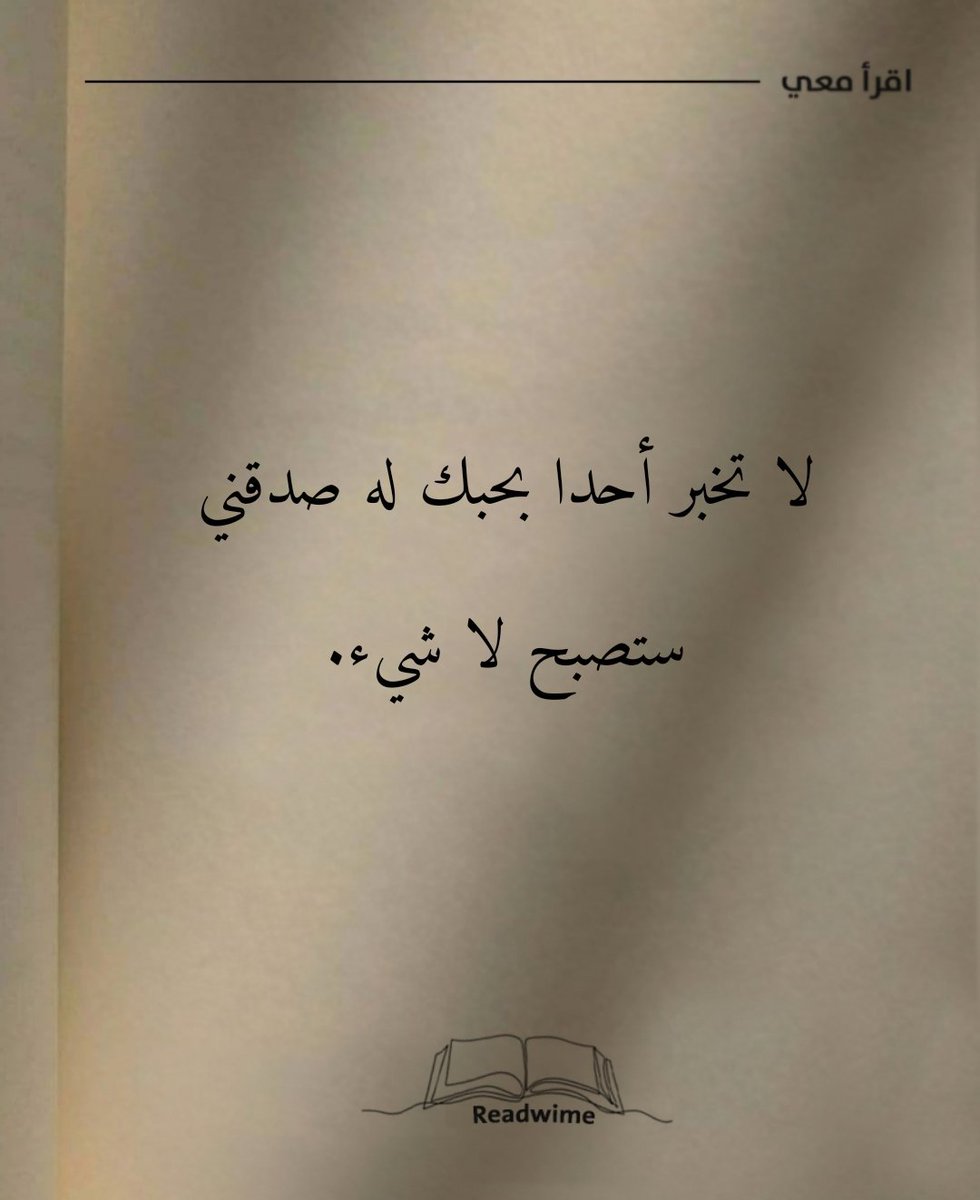 اقرأ معي
لا تخبر أحدا بحبك له صدقني
ستصبح لا شيء.
Readwime